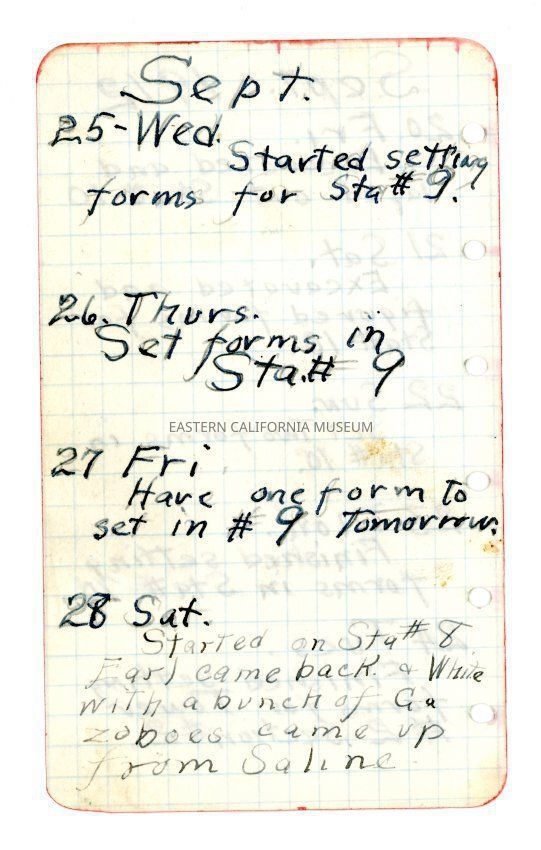 Sept.
25-Wed.
Started setting
forms for Sta# 9.
26. Thurs.
Set forms in
Sta.# 9
EASTERN CALIFORNIA MUSEUM
27 Fri
Have one form To
set in # 9 Tomorrow.
28 Sat.
Started on Sta# 8
Earl came back. & White
with a bunch of Ga
zoboes came up
from Saline